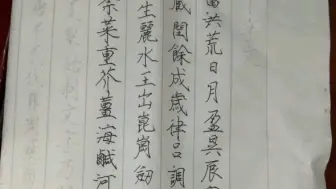 洪荒日月盈昃辰
藏閏餘成歲律呂調
生麗水玉出崑崗劒
菜重芥薑海鹹河